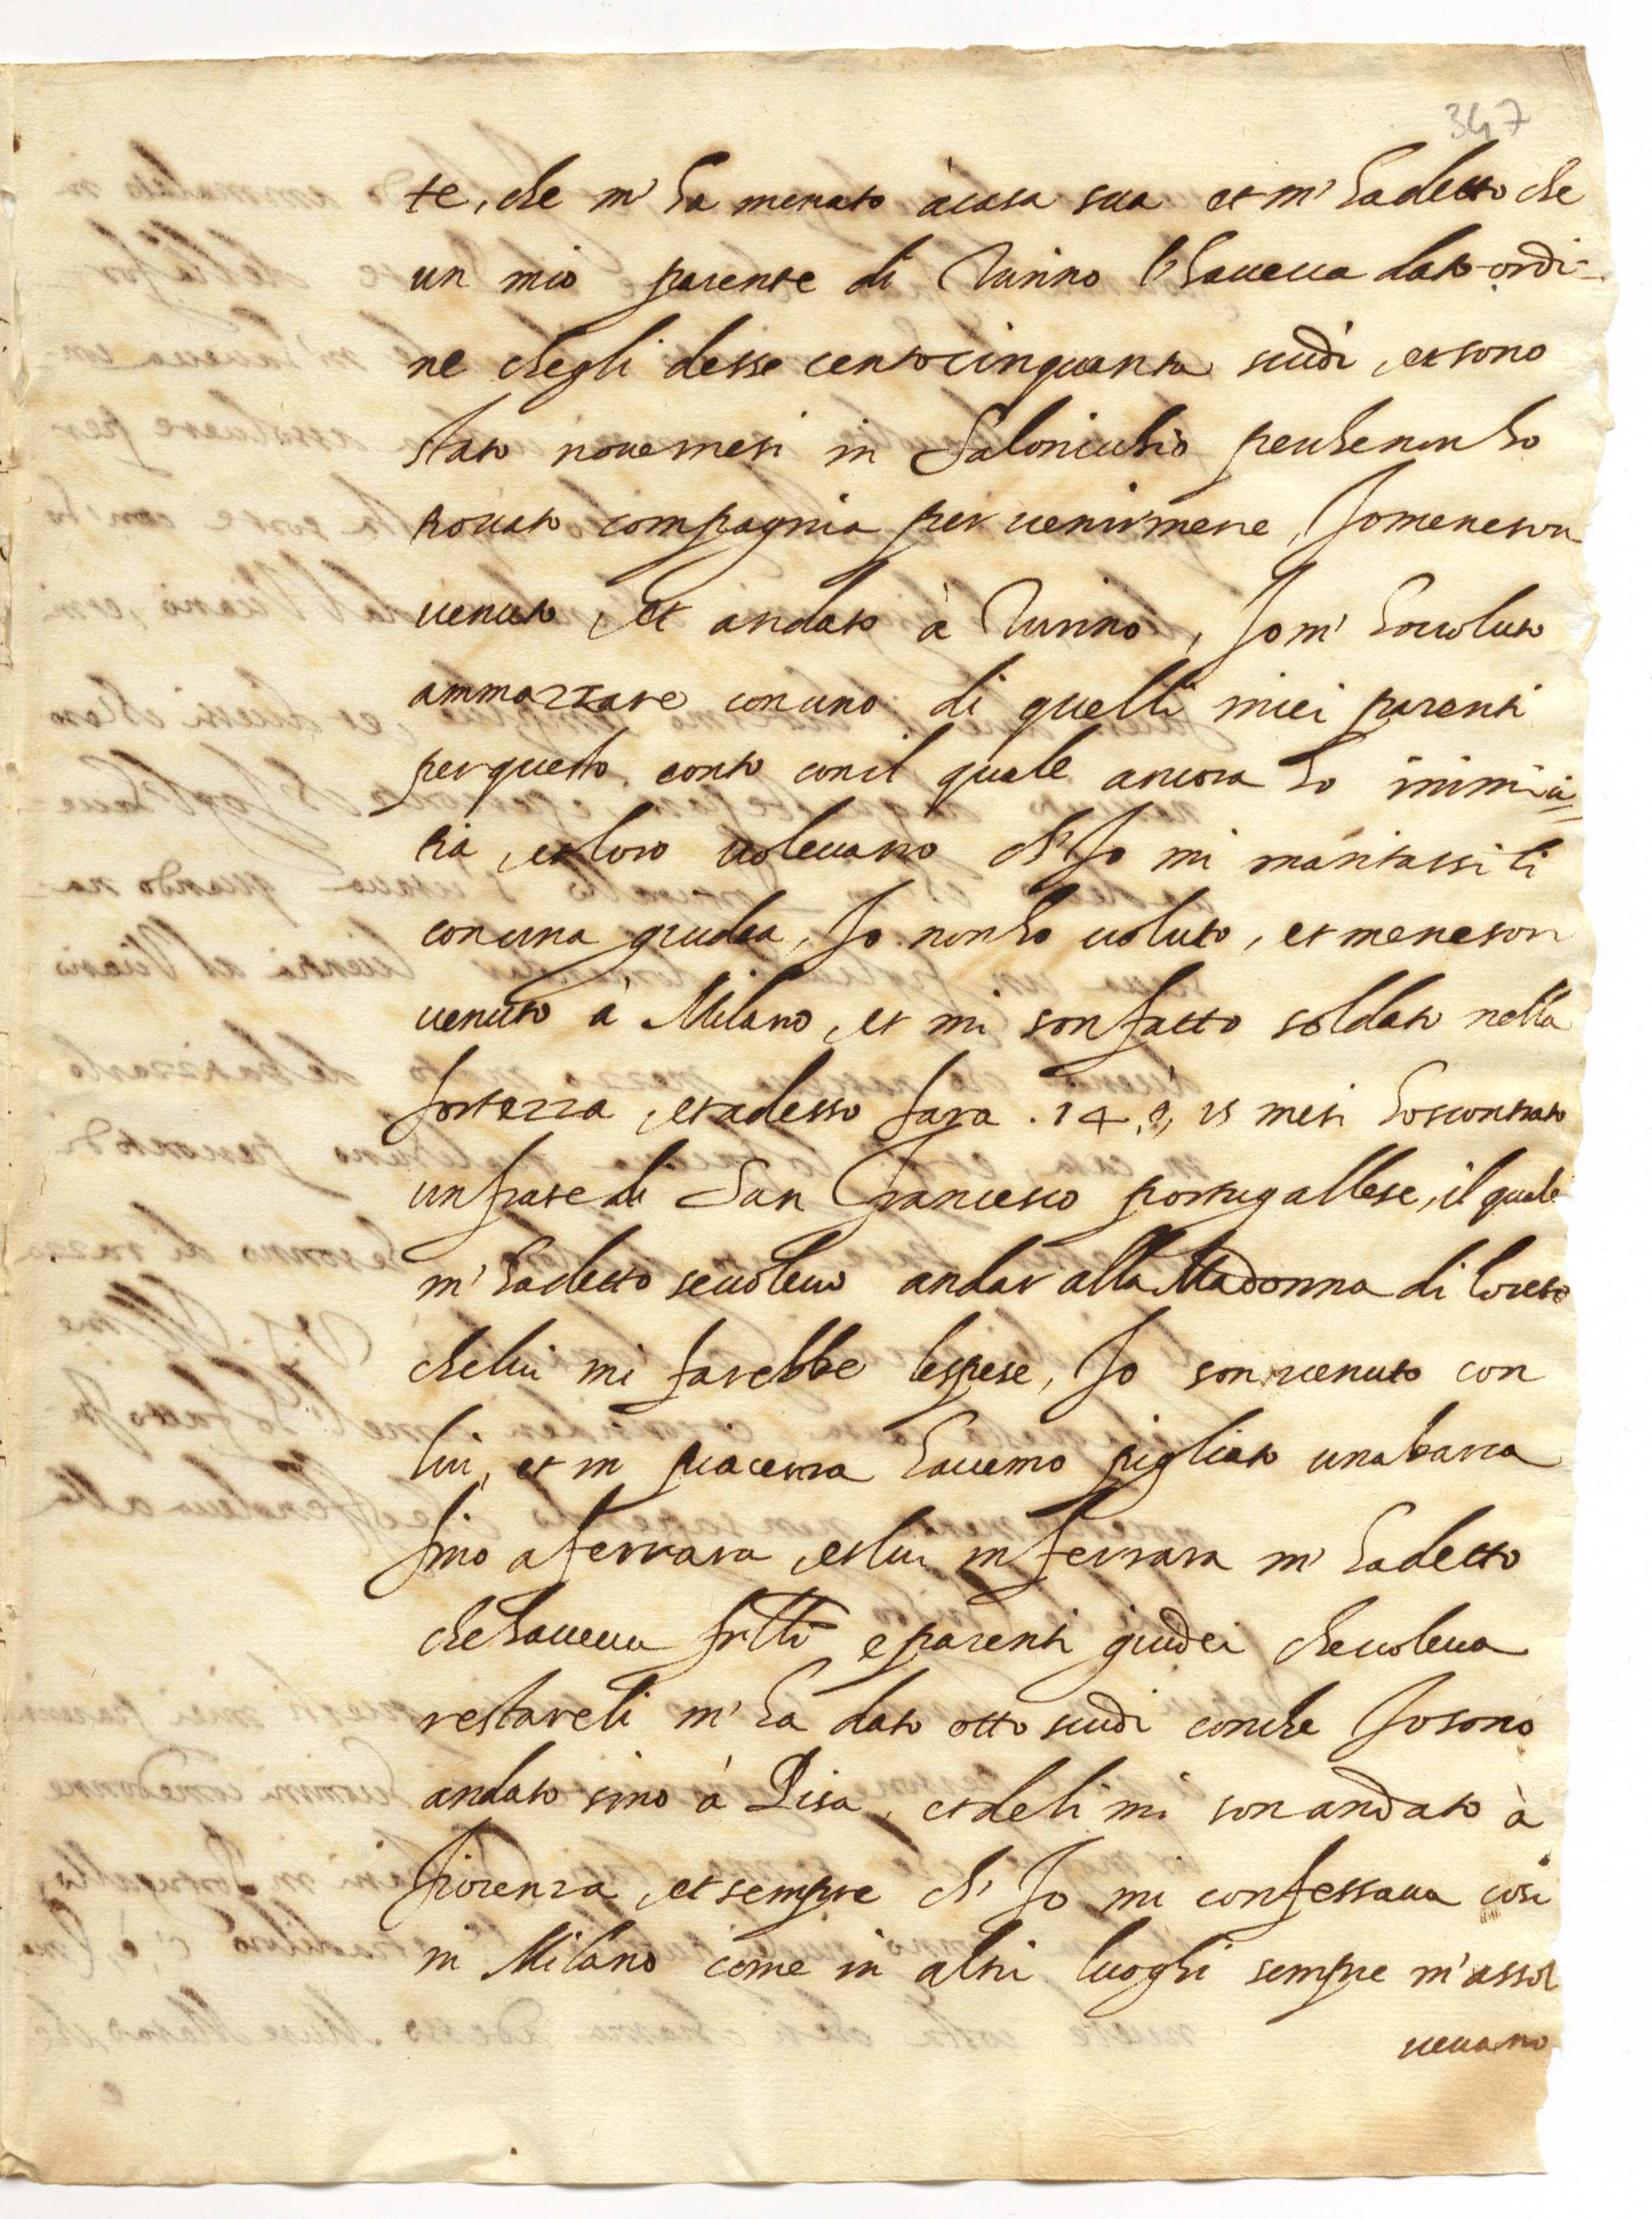 347
te, che m' ha menato à casa sua et m' ha detto che
un mio parente di Turino l' haueua dato ordi-
ne che gli desse cento cinquanta scudi, et sono
stato noue mesi in Salonicchio perche non ho
trouato compagnia per uenirmene, Io me ne son
uenuto, et andato à Turino, Io m' ho uoluto
ammazzare con uno di quelli miei parenti
per questo conto con il quale ancora ho inimici=
tia, et loro uoleuano ch' Io mi maritassi li
con una giudea, Io non ho uoluto, et me ne son
uenuto à Milano, et mi son fatto soldato nella
fortezza, et adesso sara . 14, ò, 15 mesi ho scontrato
un frate di San Francesco portugallese, il quale
m' ha detto se uoleuo andar alla Madonna di Loreto
che lui mi farebbe le spese, Io son uenuto con
lui, et in piacenza hauemo pigliato una barca
fino a ferrara, et lui in ferrara m' ha detto
che haueua frlli e parenti giudei che uoleua
restare li m' ha dato otto scudi con che Io sono
andato sino à Pisa, et de li mi son andato à
fiorenza, et sempre ch' Io mi confessaua cosi
in Milano come in altri luoghi sempre m' assol
ueuano